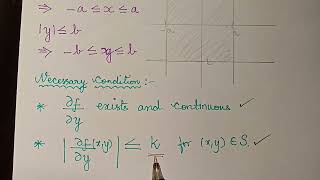 ⇒ -a ≤ x ≤ a
|y| ≤ b
⇒ -b ≤ xy ≤ b
-a
a
Necessary Condition:-
* ∂f/∂y exists and continuous ✓
* |∂f(x,y)/∂y| ≤ k for (x,y) ∈ S. ✓